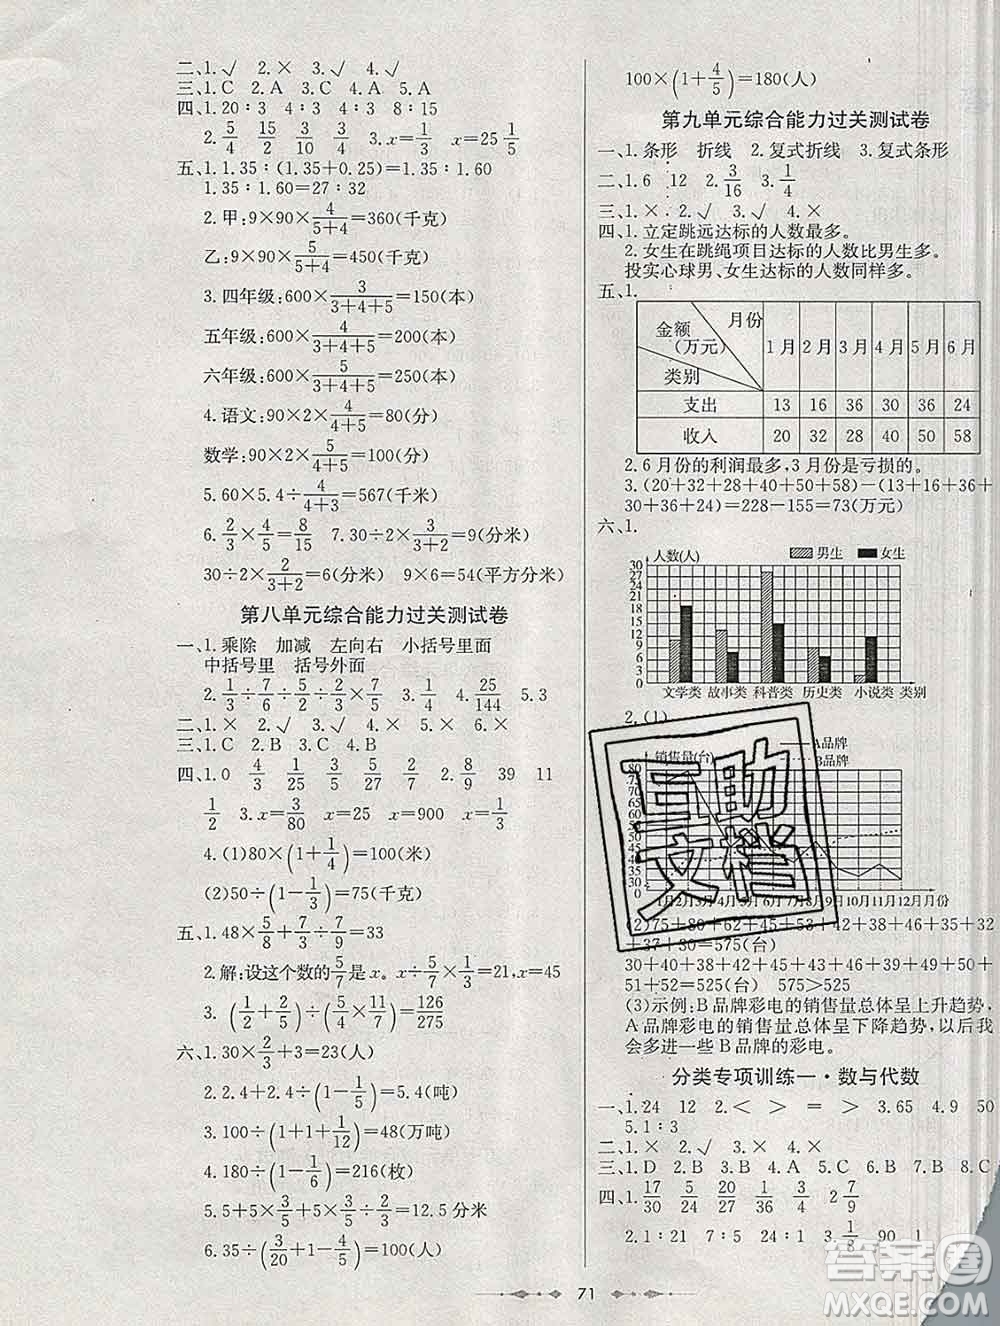 二、1.√ 2.× 3.√ 4.√
三、1.C 2.A 3.B 4.C 5.A
四、1.20∶3 4∶3 4∶3 8∶15
2.5/4 15/2 3/10 4/30 3.x=1/3 x=25 1/5
五、1.1.35∶(1.35+0.25)=1.35∶1.60
1.35∶1.60=27∶32
2.甲:9×90×4/(5+4)=360(千克)
乙:9×90×5/(5+4)=450(千克)
3.四年级:600×3/(3+4+5)=150(本)
五年级:600×4/(3+4+5)=200(本)
六年级:600×5/(3+4+5)=250(本)
4.语文:90×2×4/(4+5)=80(分)
数学:90×2×5/(4+5)=100(分)
5.60×5.4÷4/(4+3)=567(千米)
6.2/3×4/5=8/15 7.30÷2×3/(3+2)=9(分米)
30÷2×2/(3+2)=6(分米) 9×6=54(平方分米)
第八单元综合能力过关测试卷
一、1.乘除 加减 左向右 小括号里面
中括号里 括号外面
2.1/3÷7/6÷5/7÷2/5×7/5 3.1/4 4.25/144 5.3
二、1.× 2.√ 3.√ 4.× 5.× 6.×
三、1.C 2.B 3.C 4.B
四、1.0 4/3 3/5 3/4 2/7 2.9/8 39 11
1/2 3.x=3/80 x=25 x=900 x=1/3
4.(1)80×(1+1/4)=100(米)
(2)50÷(1−1/3)=75(千克)
五、1.48×5/8+7/3÷7/9=33
2.解:设这个数的5/7是x。x÷5/7×1/3=21,x=45
3.(1/2+2/5)÷(1−5/7×1/4)×7/9=126/275
六、1.30×2/3+3=23(人)
2.2.4÷(1−1/3)÷(1−1/3)=5.4(吨)
3.100÷(1+1+1/12)=48(万吨)
4.180÷(1−1/6)=216(枚)
5.5+5×3/5+5×3/5÷2/3=12.5分米
6.35÷(3/20+1−4/5)=100(人)
100×(1+4/5)=180(人)
第九单元综合能力过关测试卷
一、1.条形 折线 2.复式折线 3.复式条形
二、1.6 12 2.3/16 3.1/4
三、1.× 2.× 3.√ 4.×
四、1.立定跳远达标的人数最多。
2.女生在跳绳项目达标的人数比男生多。
投实心球男、女生达标的人数同样多。
五、1.
月份 金额(万元) 类别 1月 2月 3月 4月 5月 6月
支出 13 16 36 30 36 24
收入 20 32 28 40 50 58
2.6月份的利润最多,3月份是亏损的。
3.(20+32+28+40+50+58)−(13+16+36+
30+36+24)=228−155=73(万元)
六、1.
人数(人) 男生 女生
30
27
24
21
18
15
12
9
6
3
0
文学类 故事类 科普类 历史类 小说类 类别
2.(1)
A品牌
销售量(台) B品牌
80
75
70
50
45
40
35
30
0
1月2月3月4月5月6月7月8月9月10月11月12月月份
(2)75+80+62+43+42+53+42+32+45+32
+37+30=575(台)
30+40+44+38+42+45+42+45+46+50+
51+52=525(台) 575>525
(3)示例:B品牌彩电的销售量总体呈上升趋势,
A品牌彩电的销售量总体呈下降趋势,以后我
会多进一些B品牌的彩电。
分类专项训练一·数与代数
一、1.24 12 2.< > = > 3.65 4.9 50
5.1∶3
二、1.× 2.√ 3.√ 4.× 5.×
三、1.D 2.B 3.B 4.A 5.C 6.A 7.B 8.C
四、1.17/30 5/24 20/27 1/36 3/4 2 7/9
2.1∶21 7∶5 24∶1 3.1/8 90 1
71
互助文档
答案圈
MXQE.COM